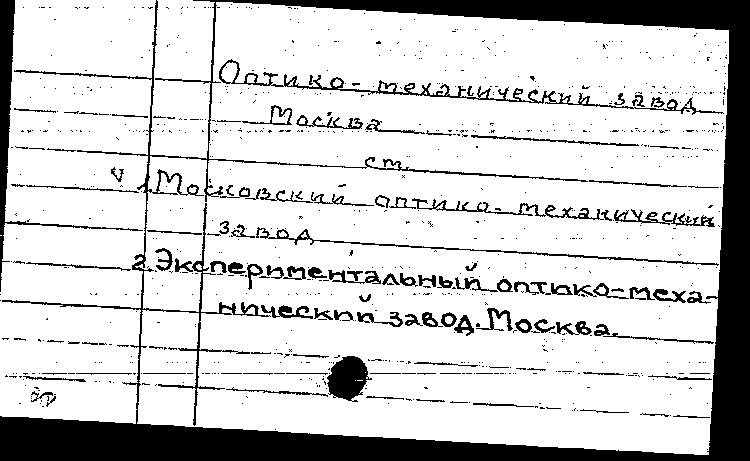 Оптико-механический завод
Москва
ст.
v 1. Московский оптико-механический
завод
2. Экспериментальный оптико-меха-
нический завод. Москва.